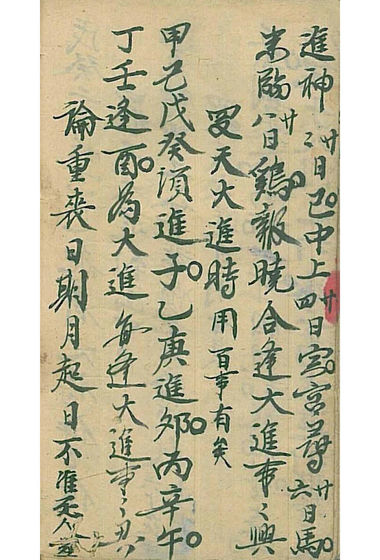 進神廿二日巳中上廿四日寅宮尋廿六日馬
未臨廿八日鷄報曉合逢大進事〻興
又天大進時用百事有矣
甲己戊癸須進子乙庚進卯丙辛午
丁壬逢酉為大進每逢大進事〻
論重喪日期月起日不准